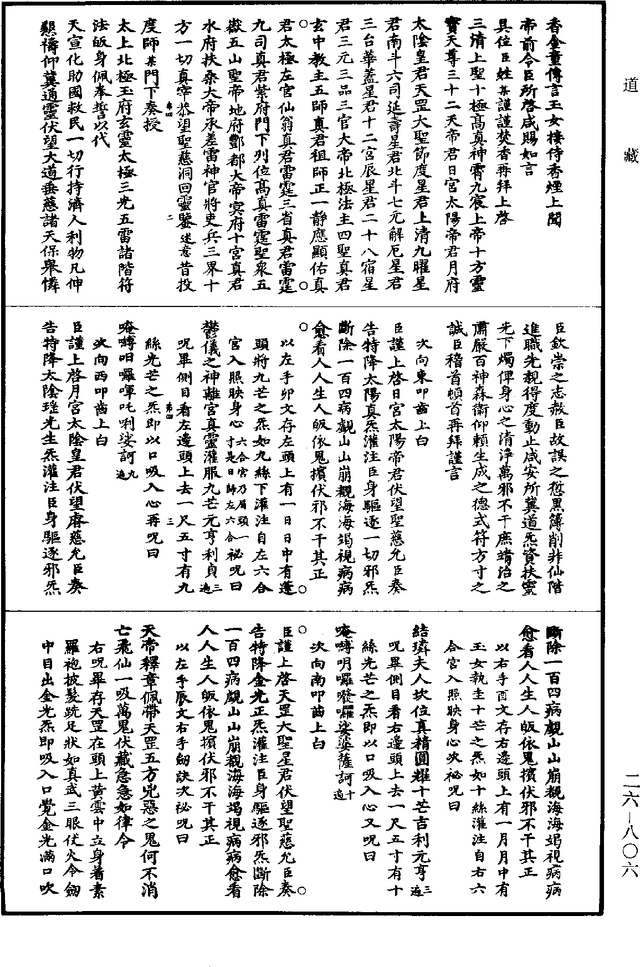 道藏
香金童傳言玉女接侍香煙上聞
帝前令臣所啓咸賜如言
具位臣姓某謹謹焚香再拜上啓
三清上聖十極高真神霄九宸上帝十方靈
寶天尊三十二天帝君日宮太陽帝君月府
太陰皇君天罡大聖節度星君上清九曜星
君南斗六司延壽星君北斗七元解厄星君
三台華蓋星君十二宮辰星君二十八宿星
君三元三品三官大帝北極法主四聖真君
玄中教主五師真君祖師正一靜應顯佑真
君太極左宮仙翁真君雷霆三省真君雷霆
九司真君紫府門下列位高真雷霆聖衆五
嶽五山聖帝地府酆都大帝冥府十宮真君
水府扶桑大帝承差雷神官將吏兵三界十
方一切真宰恭望聖慈洞回靈鑒述意昔投
度師某門下奏授
太上北極玉府玄靈太極三光五雷諸階符
法皈身佩奉誓以代
天宣化助國救民一切行持濟人利物凡伸
懇禱仰冀通靈伏望大道垂慈諸天保舉憐
臣欽崇之志赦臣故誤之愆黑簿削非仙階
進職先親得度動止咸安所冀道炁資扶靈
光下燭俾身心之清淨萬邪不干庶齋治之
肅嚴百神森衛仰賴生成之德式符方寸之
誠臣稽首頓首再拜謹言
次向東叩齒上白
臣謹上啓日宮太陽帝君伏望聖慈允臣奏
告特降太陽真炁灌注臣身驅逐一切邪炁
斷除一百四病覷山山崩觀海海竭視病病
愈看人人生人皈依鬼擯伏邪不干其正
以左手卯文存左頭上有一日日中有蓬
頭將九芒之炁如九絲下灌注自左六合
宮入照映身心六合宮乃眉頭一寸是日師左六合祕呪曰
鬱儀之神離宮真靈灌服九芒元亨利貞三遍
呪畢側目看左邊頭上去一尺五寸有九
絲光芒之炁即以口吸入心再呪曰
唵嚩呬囉吽吒唎娑訶九遍
次向西叩齒上白
臣謹上啓月宮太陰皇君伏望廥慈允臣奏
告特降太陰瑤光生炁灌注臣身驅逐邪炁
斷除一百四病覷山山崩觀海海竭視病病
愈看人人生人皈依鬼擯伏邪不干其正
以右手酉文存右邊頭上有一月月中有
玉女執圭十芒之炁如十絲灌注自右六
合宮入照映身心次祕呪曰
結璘夫人坎位真精圓耀十芒吉利元亨三遍
呪畢側目看右邊頭上去一尺五寸有十
絲光芒之炁即以口吸入心又呪曰
唵嚩明囉發囉娑婆薩訶十遍
次向南叩齒上白
臣謹上啓天罡大聖星君伏望聖慈允臣奏
告特降金光正炁灌注臣身驅逐邪炁斷除
一百四病覷山山崩觀海海竭視病病愈看
人人生人皈依鬼擯伏邪不干其正
以左手辰文右手劒訣次祕呪曰
天帝釋章佩帶天罡五方兇惡之鬼何不消
亡飛仙一吸萬鬼伏藏急急如律令
右呪畢存天罡在頭上黄雲中立身着素
羅袍披髮跣足狀如真武三眼仗火令劒
中目出金光炁即吸入口覺金光滿口吹
二六—八〇六